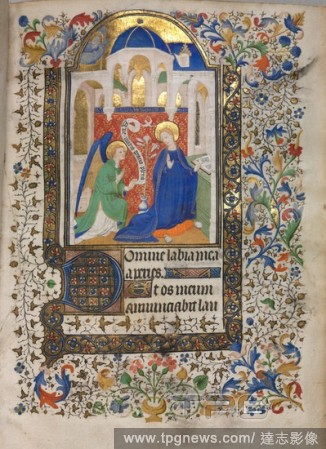 Domine labia mea
aperies.
Et os meum
annunciabit lau
TPG
www.tpgnews.com/ 達志影像